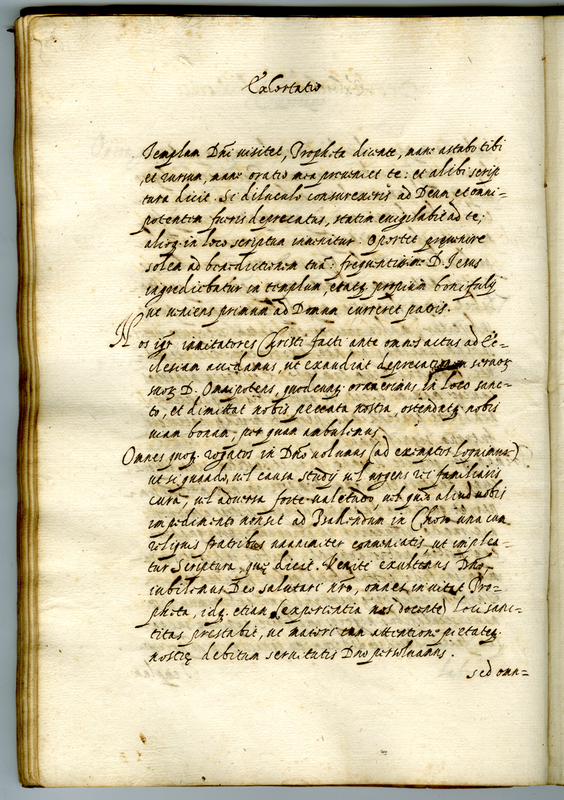 Exhortatio
Templum Dñi visitet, Propheta dicente, mane astabo tibi
et rursum, mane oratio mea præveniet te: et alibi scrip
tura dicit. Si diluculo consurrexeris ad Deum et omni-
potentem fueris deprecatus, statim evigilabit ad te;
alioq; in loco scriptum invenitur. Oportet prævenire
solem ad benedictionem tuã: frequentissime D. Jesus
ingrediebatur in templum, eratq; proprium boni filij
ut veniens primum ad Domum curreret patris.
Nos igr imitatores Christi facti ante omnes actus ad Ec-
clesiam accedamus, ut exaudiat deprecationem servoꝝ
suoꝝ D. Omnipotens, quodcunq; oraverimus in loco sanc-
to, et dimittat nobis peccata nostra, ostendatq; nobis
viam bonam, per quam ambulemus.
Omnes quoq; rogatos in Dño volumus (ad exemptos loquimur)
ut si quando, vel causa studij vel urgens rei familiaris
cura, vel adversa forte valetudo, vel quid aliud vobis
impedimento non sit ad Psallendum in Choro una cum
reliquis fratribus unanimiter conveniatis, ut implea-
tur Scriptura, quę dicit. Venite exultemus Dño,
iubilemus Deo salutari nro, omnes invitat Pro-
pheta, idq; etiam (experientia nos docente) loci sanc-
titas prestabit, ut maiori cum attentione pietatisq;
nostrę debitum servitutis Dño persolvamus.
sed omn=